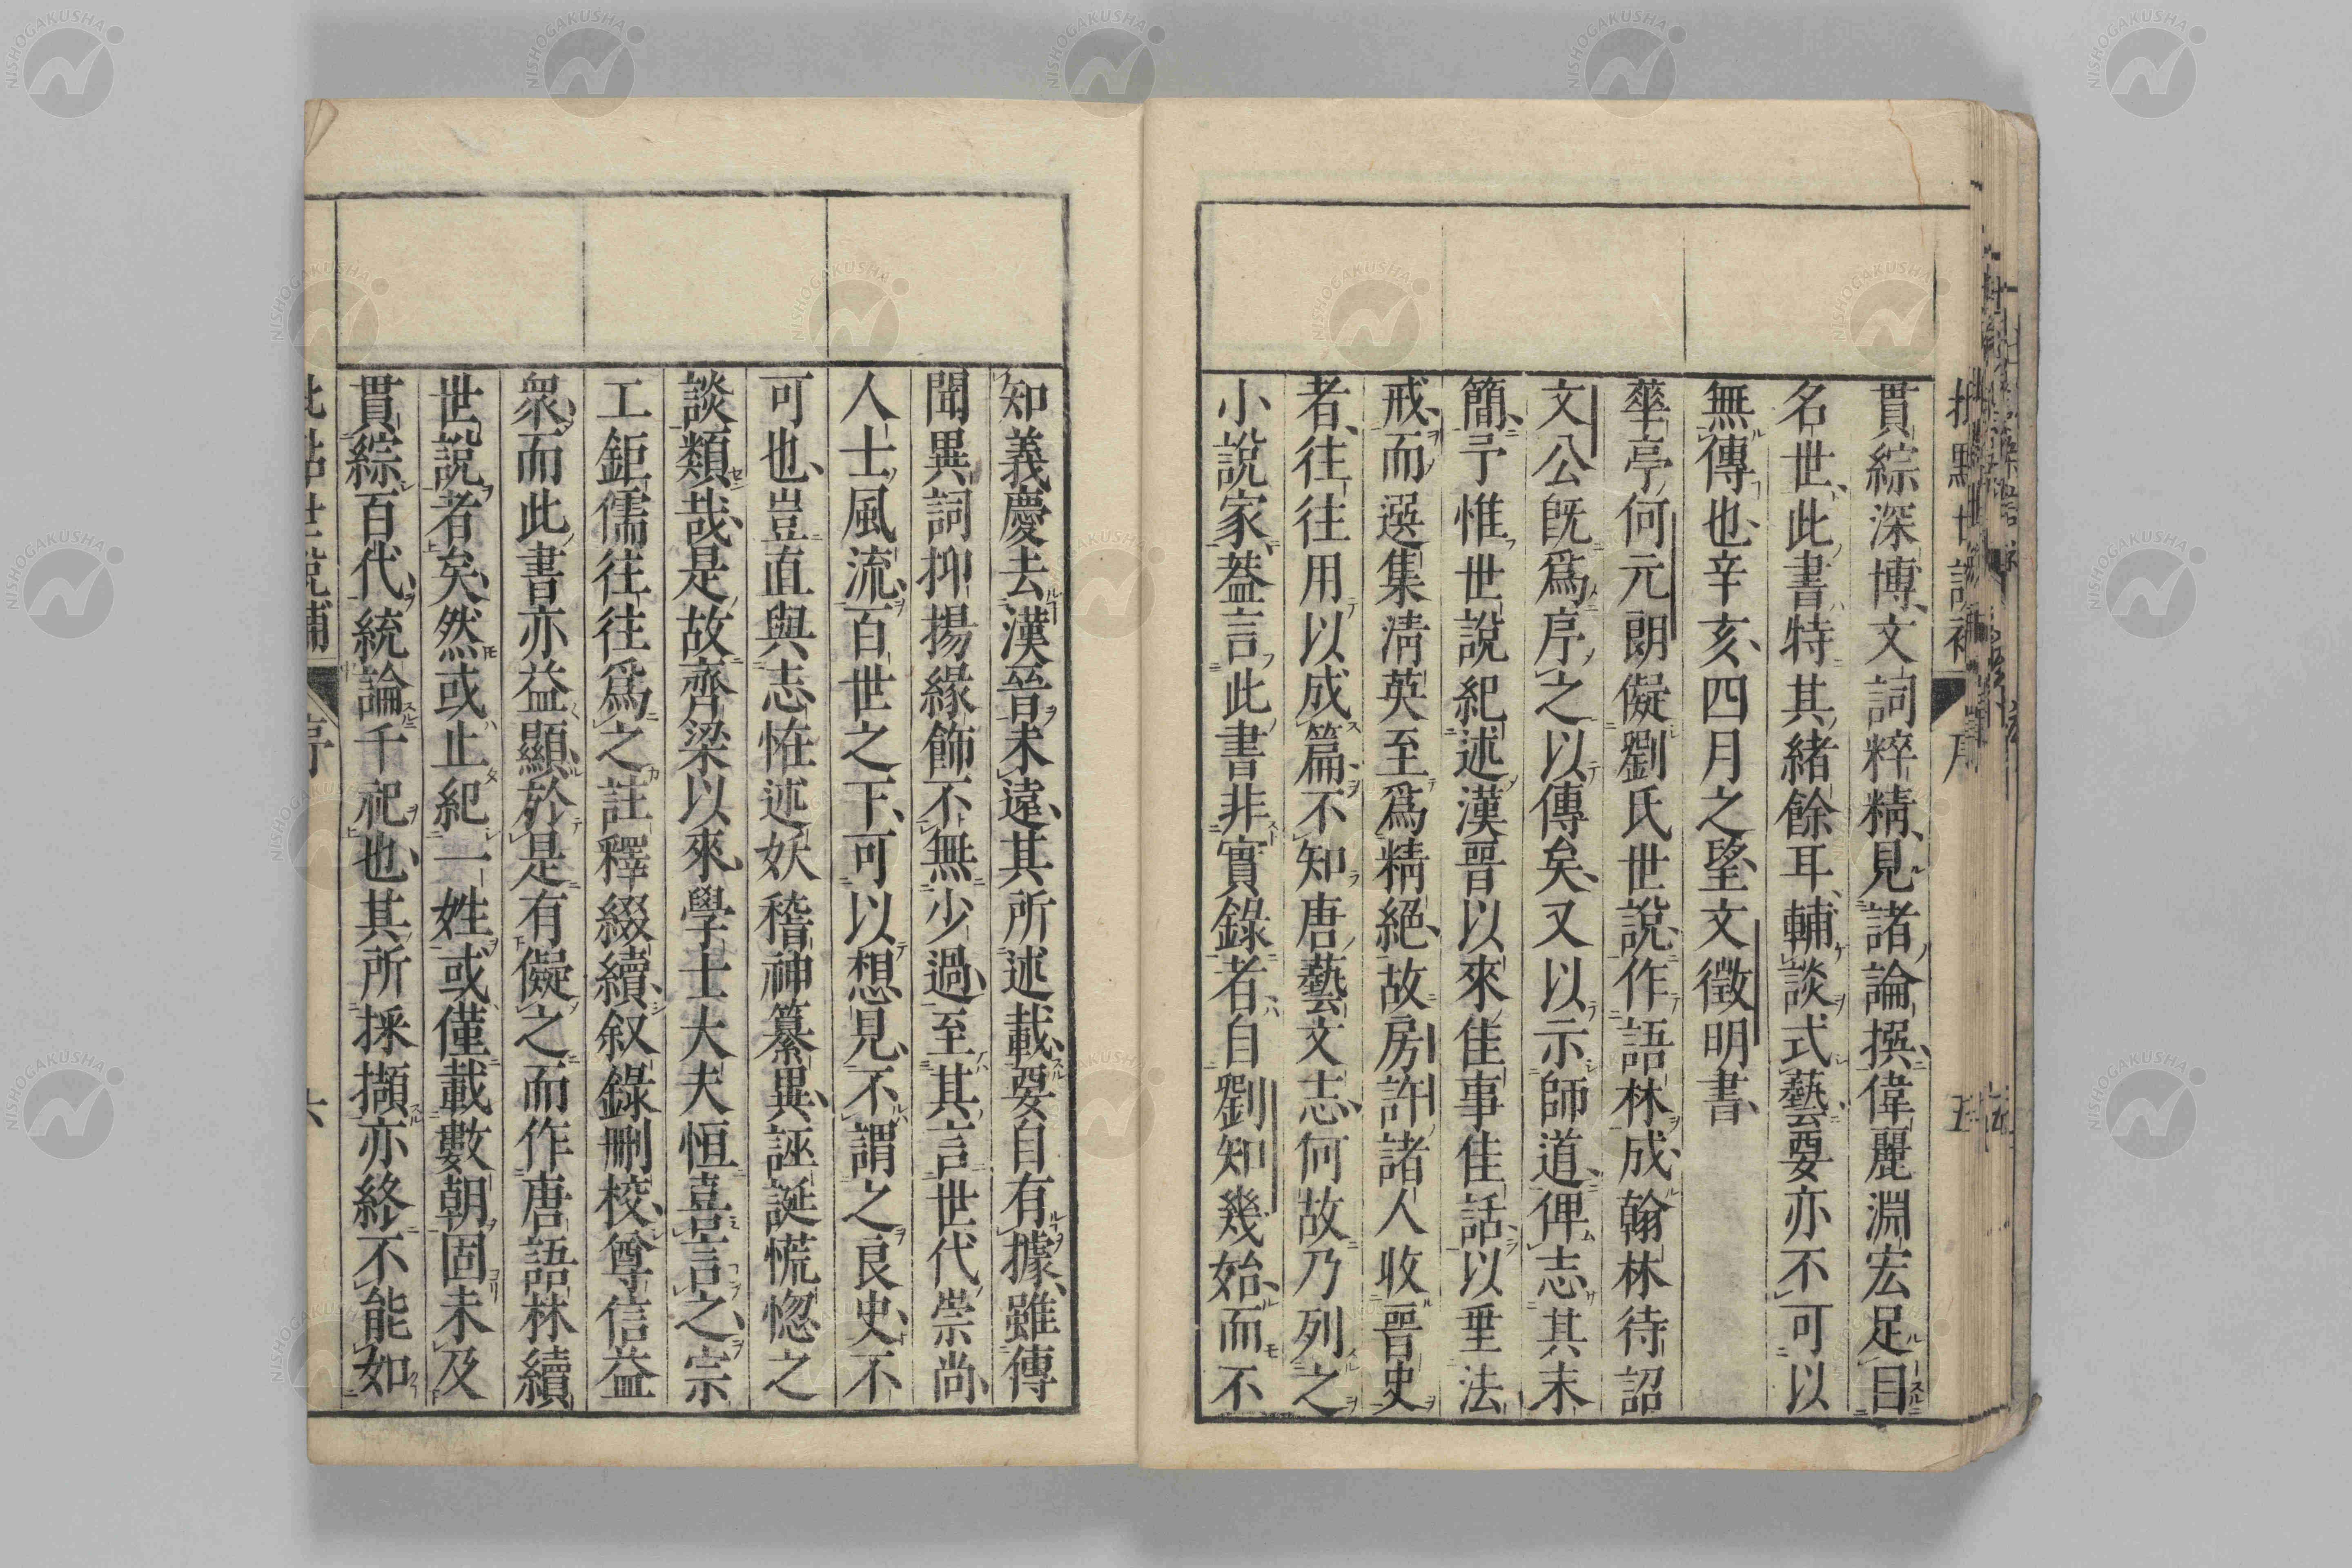 貫綜深博文詞粹精見諸論撰偉麗淵宏足目
名世此書特其緒餘耳輔談式藝要亦不可以
無傳也辛亥四月之望文徵明書
華亭何元朗儗劉氏世說作語林成翰林待詔
文公既爲序之以傳矣又以示師道俾志其末
簡予惟世說紀述漢晉以來佳事佳話以垂法
戒而選集淸英至爲精絕故房許諸人收晉史
者往往用以成篇不知唐藝文志何故乃列之
小說家葢言此書非實錄者自劉知幾始而不
知義慶去漢晉未遠其所述載要自有據雖傳
聞異詞抑揚緣飾不無少過至其言世代崇尚
人士風流百世之下可以想見不謂之良史不
可也豈直與志恠述妖稽神纂異誣誕慌惚之
談類哉是故齊梁以來學士大夫恒喜言之宗
工鉅儒往往爲之註釋綴續叙錄刪校尊信益
衆而此書亦益顯於是有儗之而作唐語林續
世說者矣然或止紀一姓或僅載數朝固未及
貫綜百代統論千祀也其所採擷亦終不能如
批點世說補 序 六
NISHOGAKUSHA